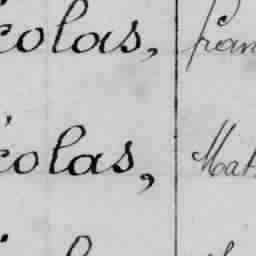 colas, fran
colas, Mat